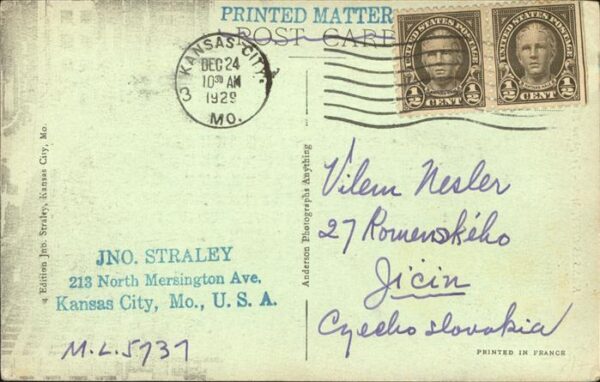 PRINTED MATTER
POST CARD
KANSAS CITY,
DEC 24
10 30 AM
1929
3
MO.
UNITED STATES POSTAGE
1/2 CENT 1/2
UNITED STATES POSTAGE
1/2 CENT 1/2
4 Edition Jno. Straley, Kansas City, Mo.
Anderson Photographs Anything
Vilem Nesler
27 Komenského
Jicin
Czechoslovakia
JNO. STRALEY
213 North Mersington Ave.
Kansas City, Mo., U. S. A.
M.L.5737
PRINTED IN FRANCE